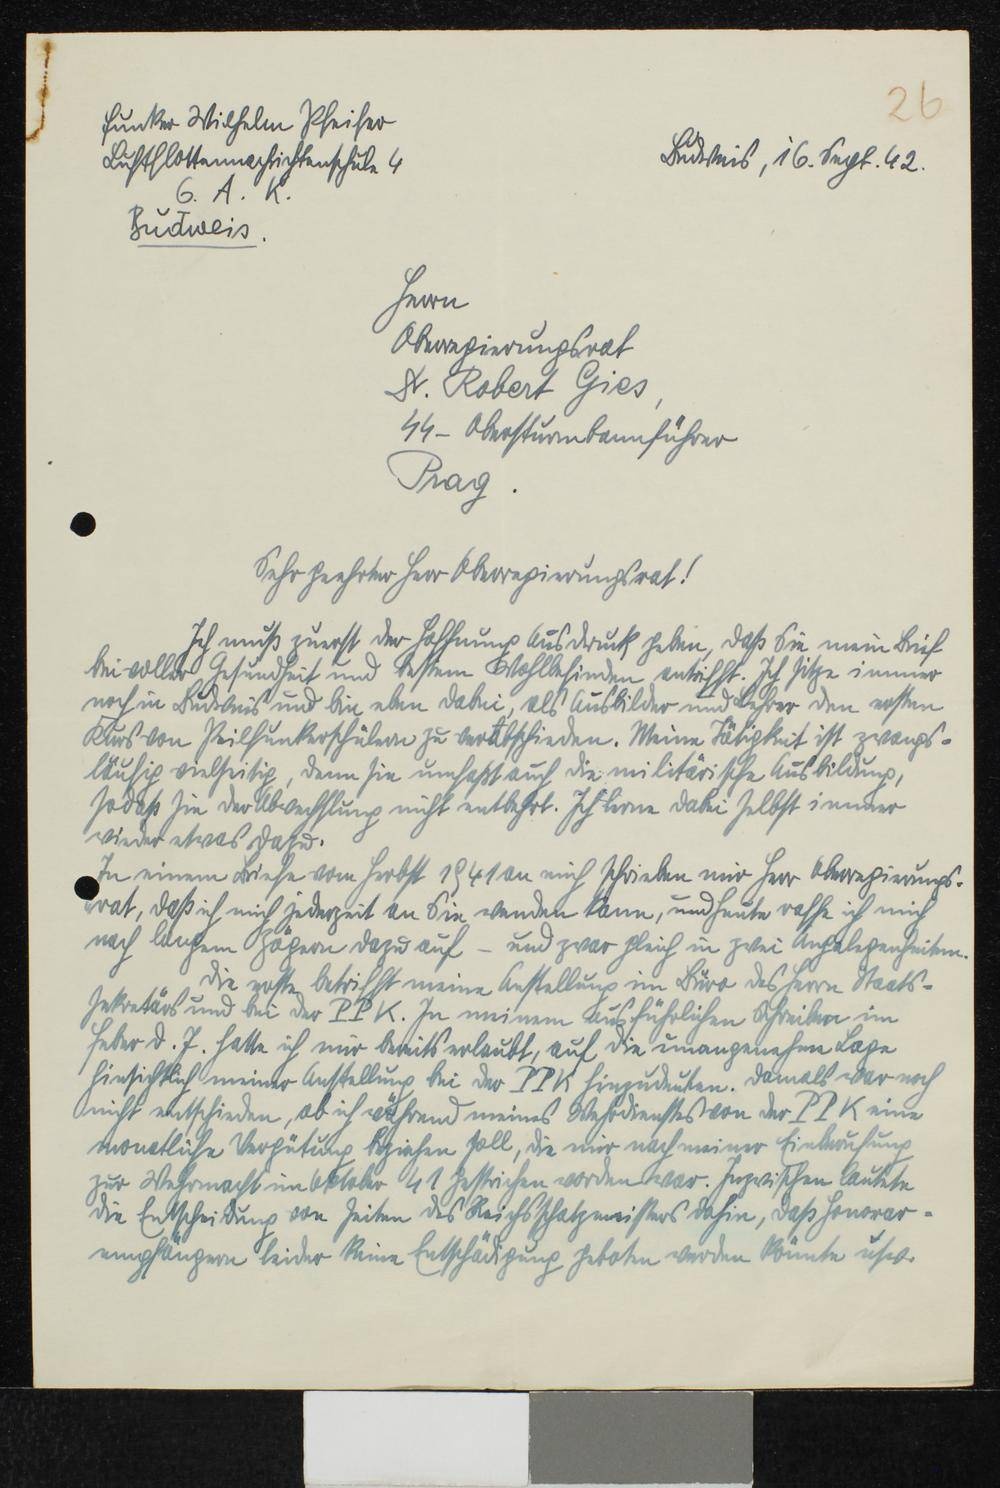 26
Funker Wilhelm Pfeifer
Luftflottennachrichtenschule 4
6. A. K.
Budweis.
Budweis, 16. Sept. 42.
Herrn
Oberregierungsrat
Dr. Robert Gies,
SS-Obersturmbannführer
Prag.
Sehr geehrter Herr Oberregierungsrat!
Ich muß zuerst der Hoffnung Ausdruck geben, daß Sie mein Brief
bei voller Gesundheit und bestem Wohlbefinden antrifft. Ich sitze immer
noch in Budweis und bin eben dabei, als Ausbilder und Lehrer den ersten
Kurs von Peilfunkerschülern zu verabschieden. Meine Tätigkeit ist zwangs-
läufig vielseitig, denn sie umfaßt auch die militärische Ausbildung,
sodaß sie der Abwechslung nicht entbehrt. Ich lerne dabei selbst immer
wieder etwas dazu.
In einem Briefe vom Herbst 1941 an mich schrieben mir Herr Oberregierungs-
rat, daß ich mich jederzeit an Sie wenden kann, und heute raffe ich mich
nach langem Zögern dazu auf – und zwar gleich in zwei Angelegenheiten.
Die erste betrifft meine Anstellung im Büro des Herrn Staats-
sekretärs und bei der PPK. In meinem ausführlichen Schreiben im
Feber d. J. hatte ich mir bereits erlaubt, auf die unangenehme Lage
hinsichtlich meiner Anstellung bei der PPK hinzudeuten. Damals war noch
nicht entschieden, ob ich während meines Wehrdienstes von der PPK eine
monatliche Vergütung beziehen soll, die mir nach meiner Einberufung
zur Wehrmacht im Oktober 41 gestrichen worden war. Inzwischen lautete
die Entscheidung von seiten des Reichsschatzmeisters dahin, daß Honorar-
empfängern leider keine Entschädigung geboten werden könnte usw.